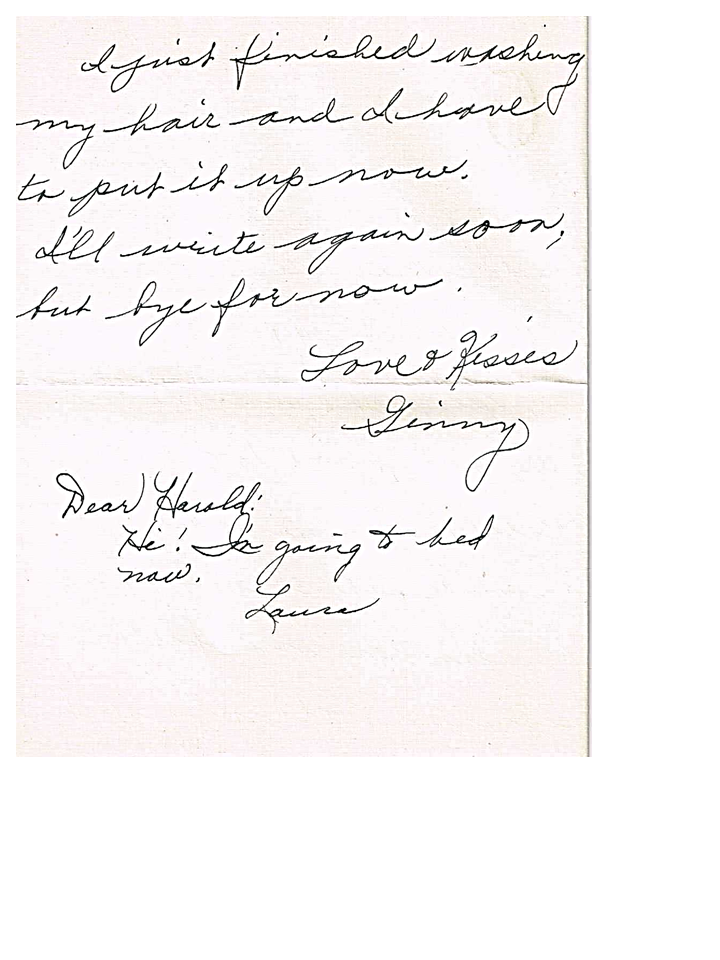 I just finished washing
my hair and I have
to put it up now.
I'll write again soon,
but bye for now.
Love & Kisses
Ginny
Dear Harold:
Hi! I'm going to bed
now.
Laura